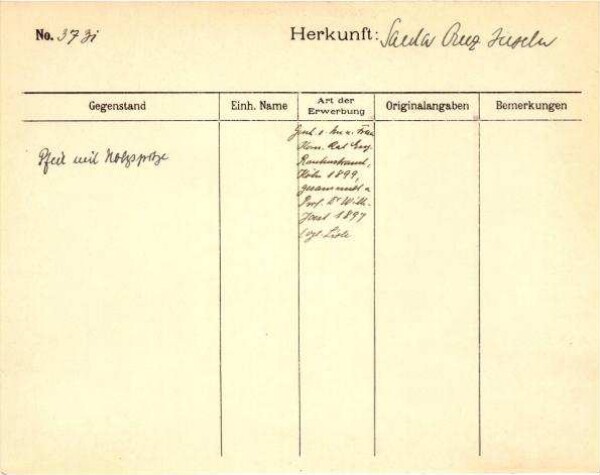 No. 373i
Herkunft: Santa Cruz Inseln
Gegenstand
Einh. Name
Art der
Erwerbung
Originalangaben
Bemerkungen
Pfeil mit Holzspitze
Gesch. v. Hrn u. Frau
Kom. Rat Eug.
Rautenstrauch,
Köln 1899,
gesammelt v.
Prof. Dr Wilh.
Joest 1897
(vgl. Liste